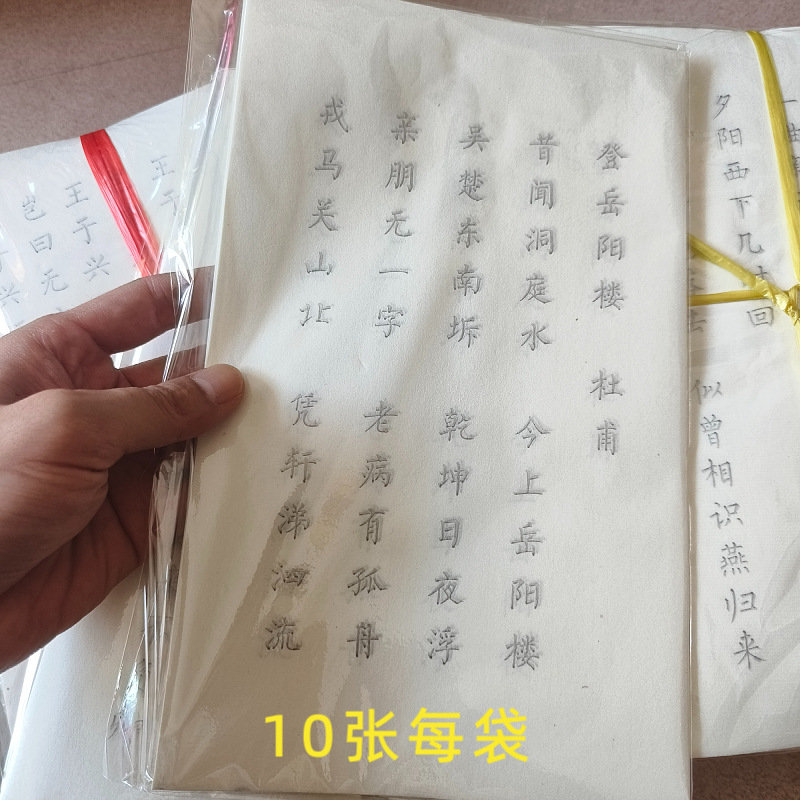 登岳阳楼 杜甫
昔闻洞庭水 今上岳阳楼
吴楚东南坼 乾坤日夜浮
亲朋无一字 老病有孤舟
戎马关山北 凭轩涕泗流
夕阳西下几 回
似曾相识燕归来
王于兴
王于
岂曰无
10张每袋